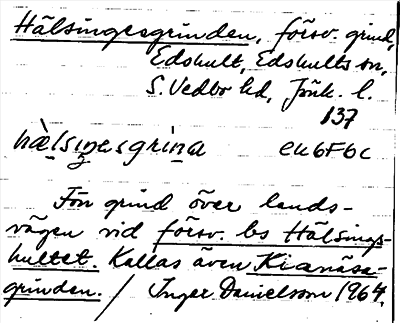 Hälsingesgrinden, försv. grind,
Edshult, Edshults sn,
S. Vedbo hd, Jönk. l.
137
hàlsiŋesgrina eu6F6c
Fön grind över lands-
vägen vid försv. bs Hälsings-
hultet. Kallas även Kianäsa-
grinden. / Inger Danielsson 1964.